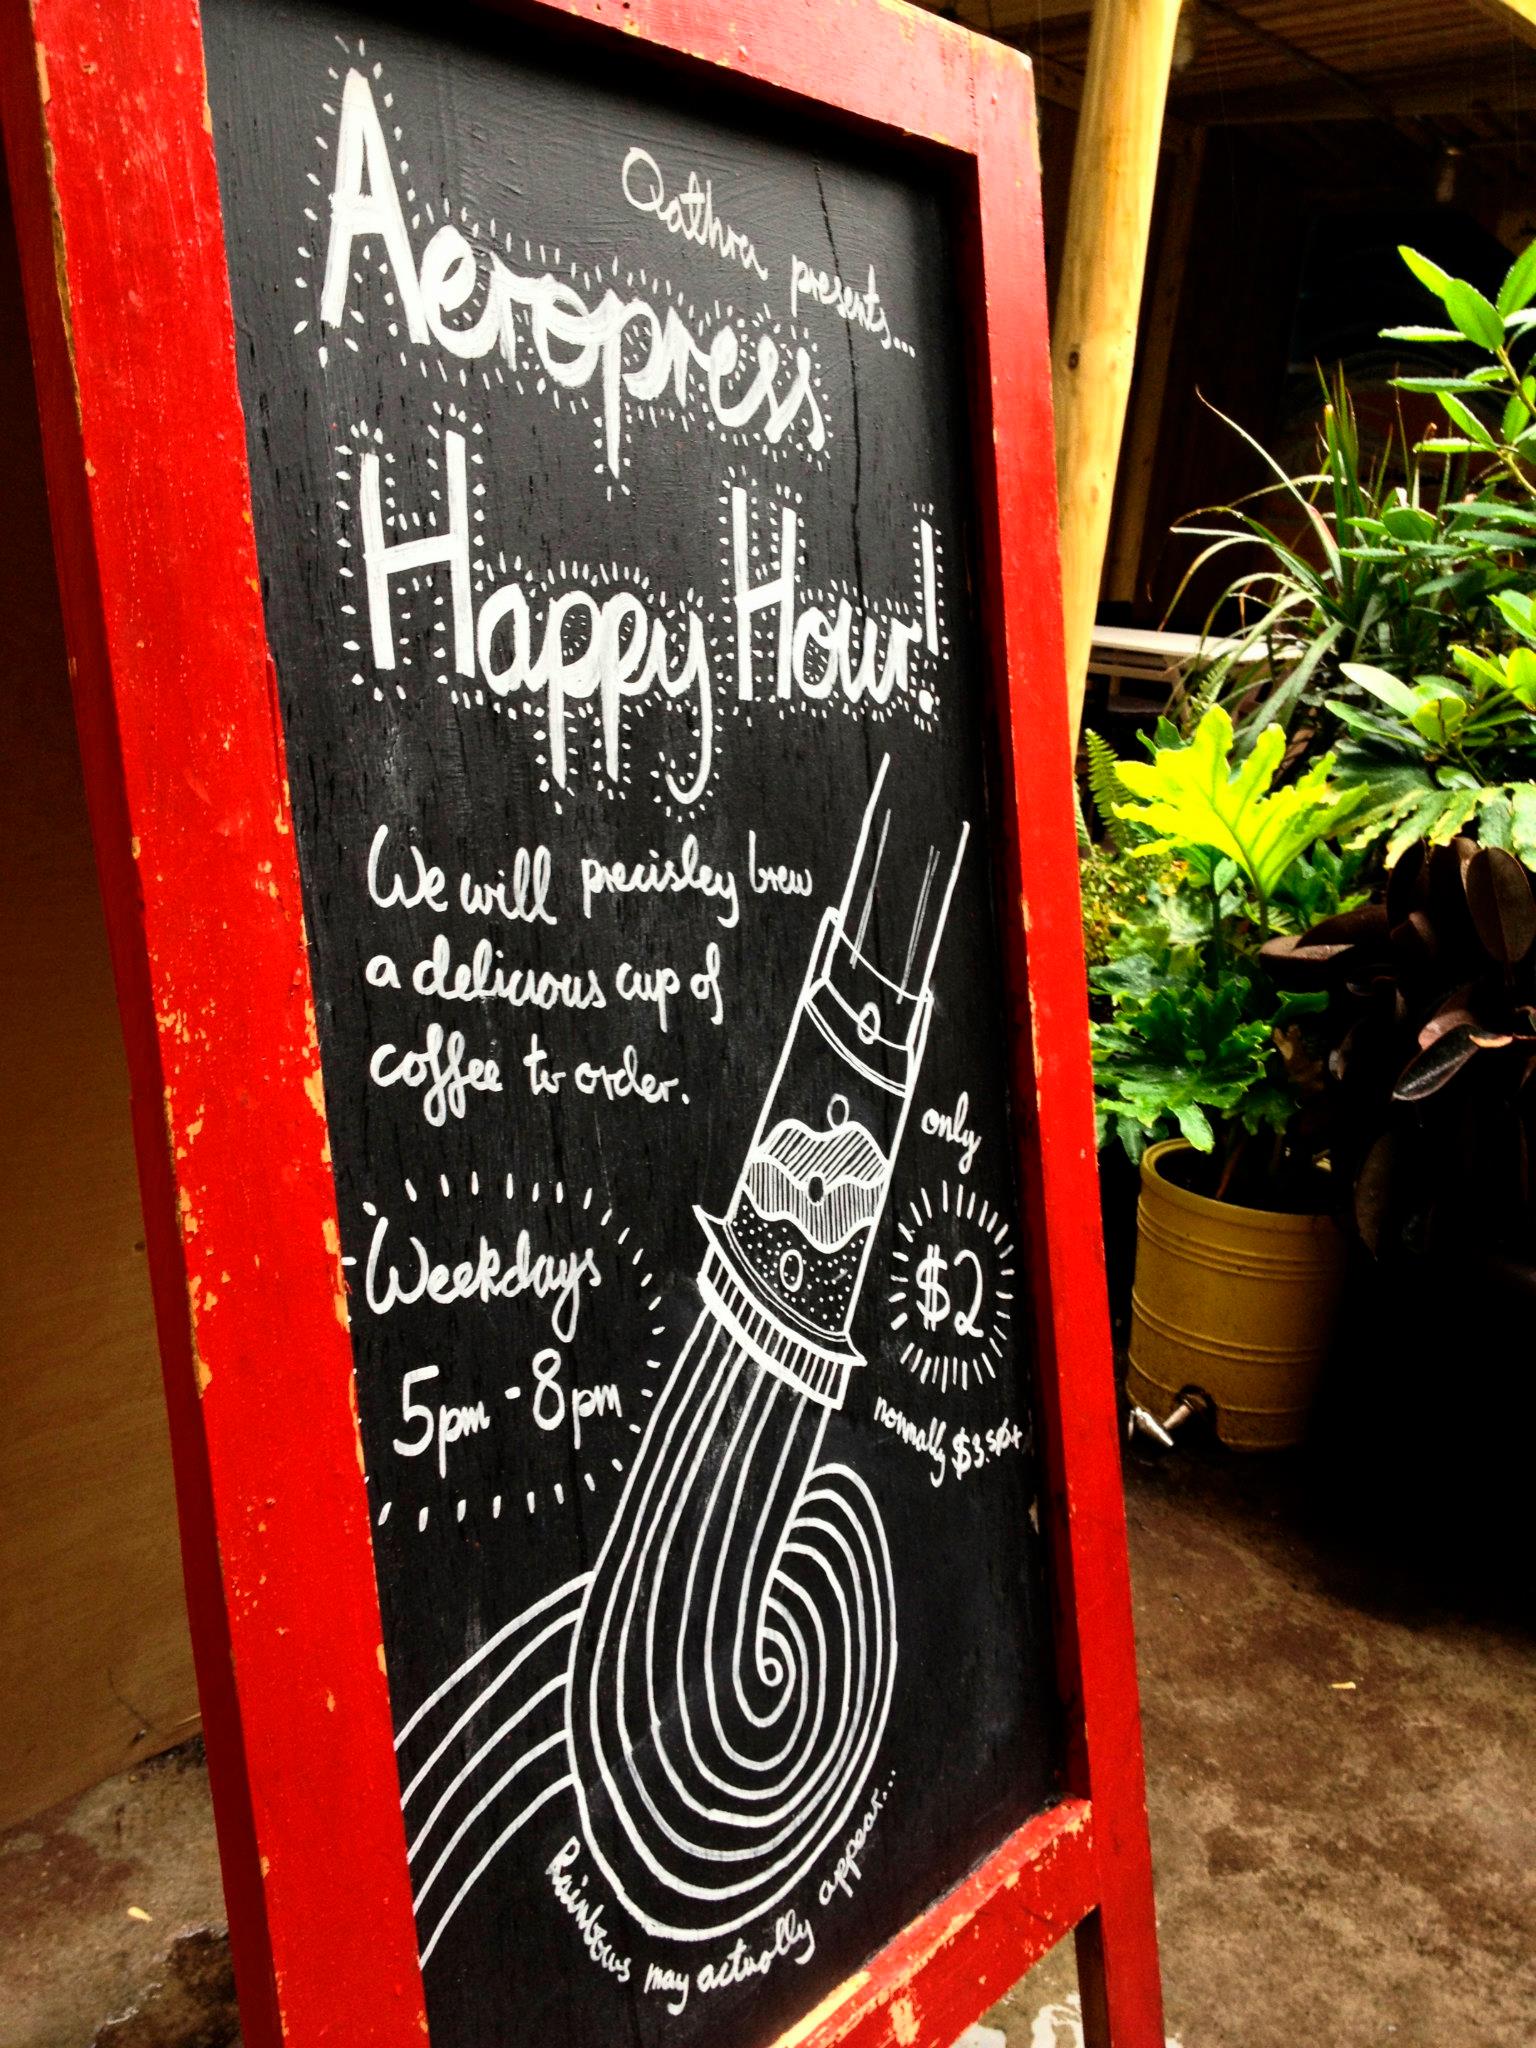 Qathra presents...
Aeropress
Happy Hour!
We will precisley brew
a delicious cup of
coffee to order.
Weekdays
5pm - 8pm
only
$2
normally $3.50
Rainbows may actually appear...